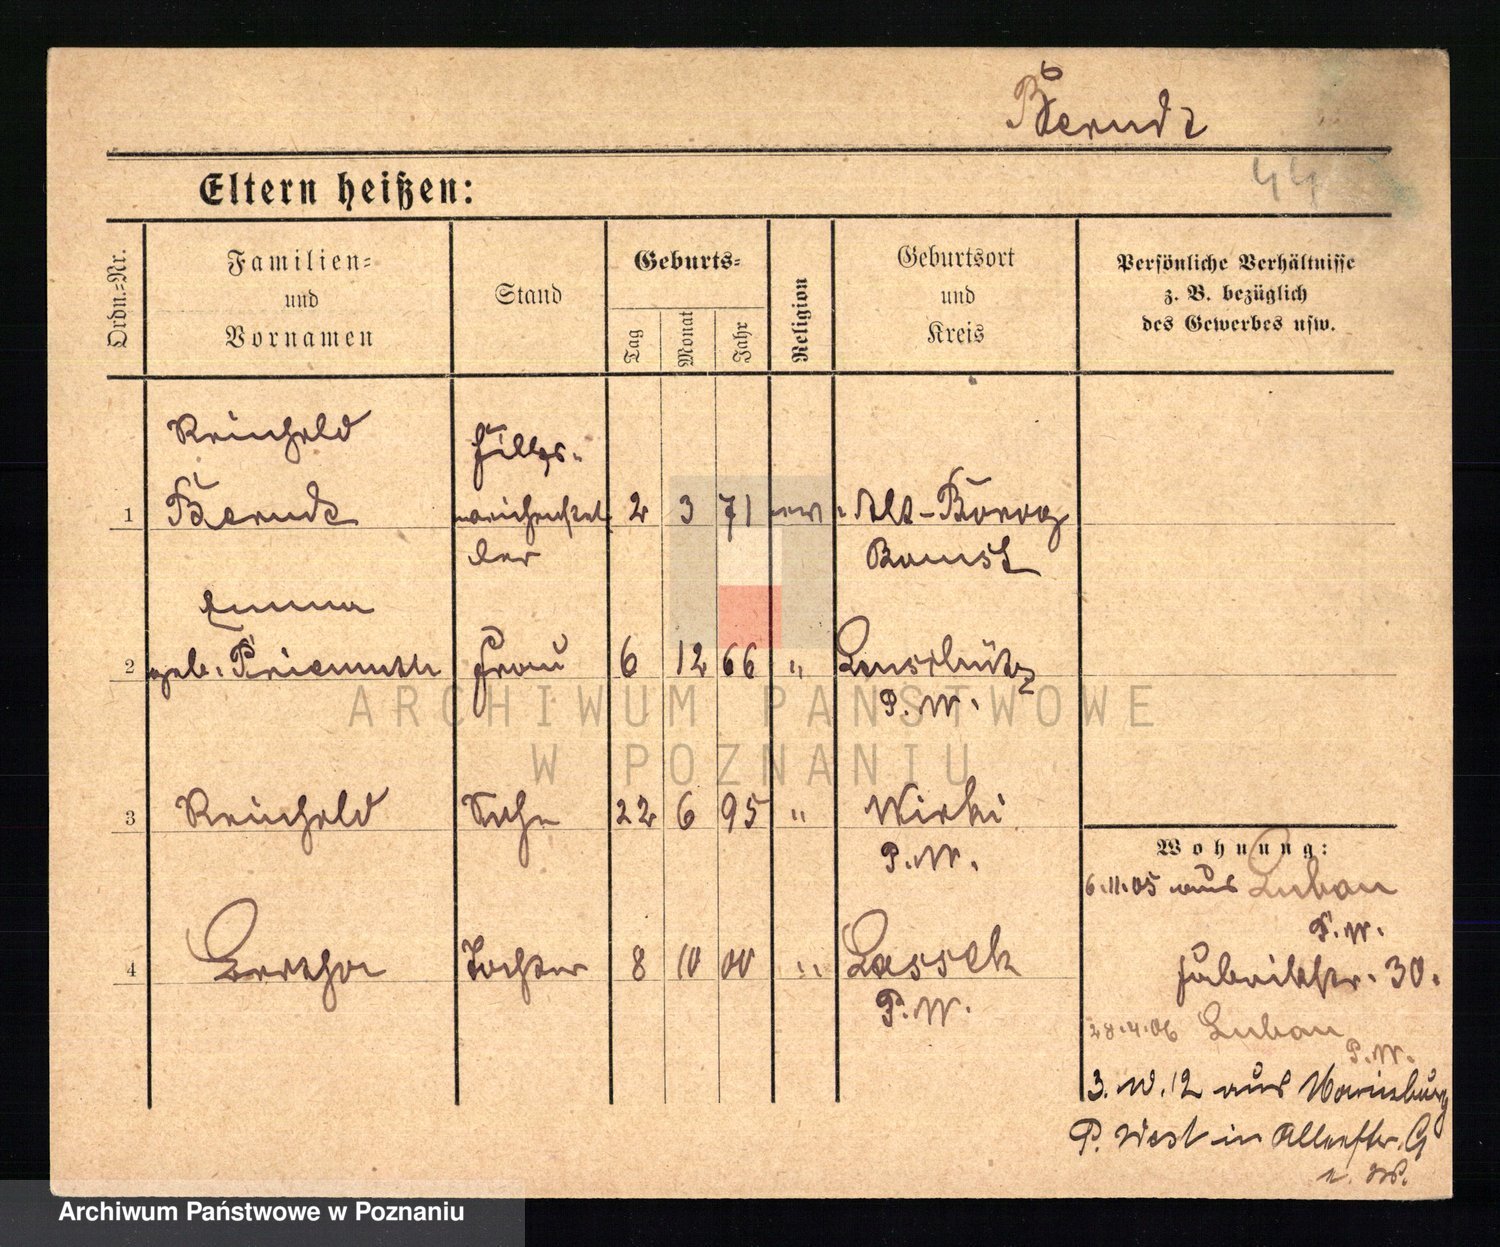 6
Berndt
44
Eltern heißen:
Ordn.=Nr.
Familien=
und
Vornamen
Stand
Geburts=
Tag
Monat
Jahr
Religion
Geburtsort
und
Kreis
Persönliche Verhältnisse
z. B. bezüglich
des Gewerbes usw.
Reinhold
Hilfs-
1 Berndt weichenstel 2 3 71 ev. Alt-Boruy
ler Bomst
Emma
2 geb. Priemuth Frau 6 12 66 "
P. W.
3 Reinhold Sohn 22 6 95 " Wirki
P. W.
4 Bertha Tochter 8 10 00 " Lassek
P. W.
Wohnung:
6.11.05 aus Luban
P. W.
Fabrikstr. 30.
28.4.06 Luban
P. W.
3. 10. 12 aus
P. West in
ARCHIWUM PAŃSTWOWE
W POZNANIU
Archiwum Państwowe w Poznaniu